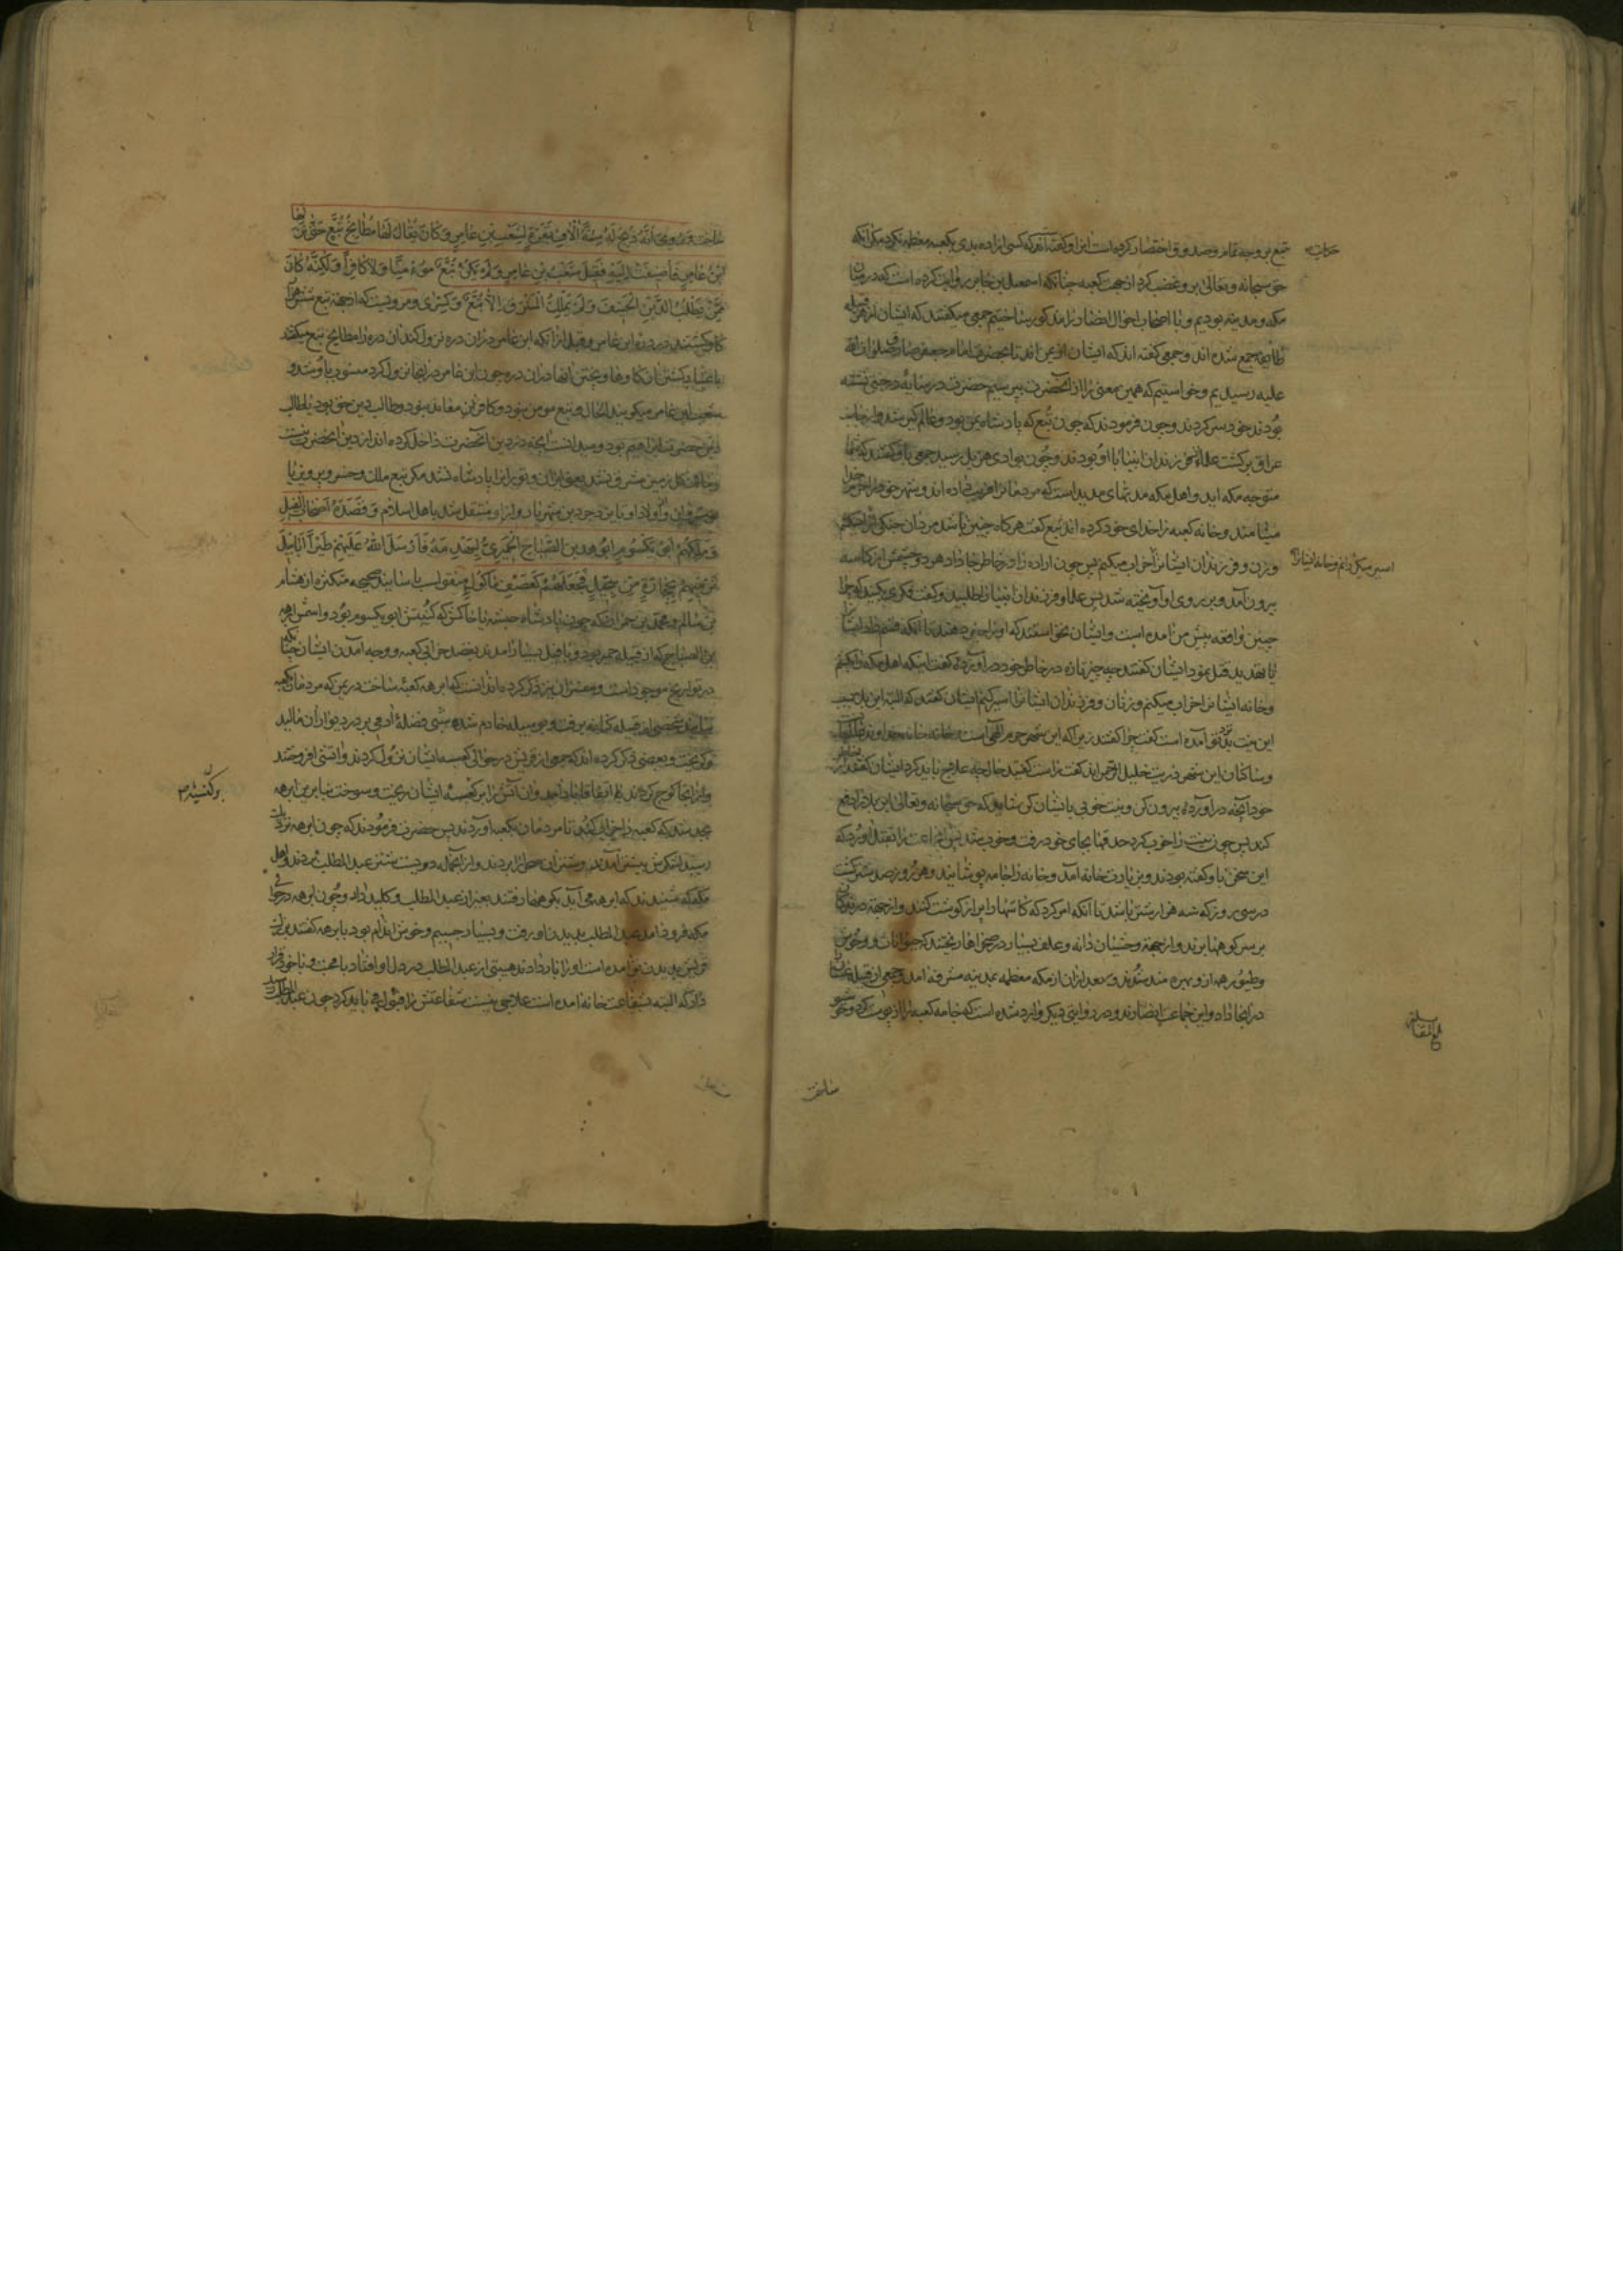 تبع بر وجه تمام و صدوق اختصار کرده است این او گفته اند که کسی اراده بدی بکعبه معظمه نکرد مگر آنکه
حق سبحانه و تعالی برو غضب کرد از جهت کعبه چنانکه اسمعیل بن جابر روایت کرده است که در میان
مکه و مدینه بودیم و با اصحاب احوال انصار را مذکور میساختیم جمعی میگفتند که ایشان از هر قبیله
طایفه جمع شده اند و جمعی گفته اند که ایشان از یمن اند تا بحضرت امام جعفر صادق صلوات الله
علیه رسیدیم و خواستیم که همین معنی را از آنحضرت بپرسیم حضرت در سایه درختی نشسته
بودند خود سر کردند و چون فرمودند که چون تبع که پادشاه یمن بود و عالم گیر شد و از جانب
عراق برگشت علما و فرزندان انبیا با او بودند و چون بوادی هزیل رسید جمعی باو گفتند که شما
متوجه مکه اید و اهل مکه مدتهای مدید است که مردمان را فریب داده اند و شهر خود را حرم خدا
مینامند و خانه کعبه را خدای خود کرده اند تبع گفت هرگاه چنین باشد مردان جنگی ایشان را میکشم
و زن و فرزندان ایشان را خراب میکنم پس چون اراده را در خاطر جا داد هر دو چشمش از کاسه
اسیر میگردانم و خانه ایشان را
بیرون آمد و بر روی او آویخته شد پس علما و فرزندان انبیا را طلبید و گفت فکری بکنید که چرا
چنین واقعه پیش من آمده است و ایشان نخواستند که او را خبر دهند تا آنکه قسم داد ایشان
یا تهدید قتل نمود ایشان گفتند چه چیز تازه در خاطر خود در آورده گفت اینکه اهل مکه را بکشم
و خانه ایشان را خراب میکنم و زنان و فرزندان ایشان را اسیر کنم ایشان گفتند که البته این بلا بسبب
این نیت بد بتو آمده است گفت چرا گفتند زیرا که این شهر حرم الهی است و خانه خانه خداوند عالمیان
و ساکنان این شهر ذریت خلیل الرحمن اند گفت راست گفتید حالا چه علاج باید کرد ایشان گفتند از خاطر
خود آنچه در آورده بیرون کن و نیت خوبی با ایشان کن شاید که حق سبحانه و تعالی این بلا را دفع
کند پس چون نیت را خوب کرد حدقها بجای خود رفت و خوب شد پس آن جماعت را بقتل آورد که
این سخن باو گفته بودند و بزیارت خانه آمد و خانه را جامه پوشانید و هر روز صد شتر کشت
در سی روز که سه هزار شتر باشد تا آنکه امر کرد که کاسها را پر از گوشت کنند و از جهة درندگان
بر سر کوهها برند و از جهة وحشیان دانه و علف بسیار در صحراها ریختند که حیوانات و وحوش
و طیور همه ازو بهره مند شدند و بعد ازان از مکه معظمه بمدینه مشرفه آمد و جمعی از قبیله غسان را
در آنجا داد و این جماعت انصارند و در روایتی دیگر وارد شده است که جامه کعبه را از پوست کرد و خوشبو
بلغ القبال
ساخت و روی انه ذبح له ستة آلاف بقرة بشعب ابن عامر و کان یقال لها مطابخ تبع حتی نزلها
ابن عامر فاضیفت الیه فقیل شعب ابن عامر و لم یکن تبع مؤمنا و لا کافرا و لکنه کان
ممن یطلب الدین الحنیف و لم یملک المشرق الا تبع و کسری و مرویست که از جهة تبع شش هزار
گاو کشتند در دره ابن عامر و قبل از آنکه ابن عامر دران دره نزول کند آن دره را مطابخ تبع میگفتند
باعتبار کشتن آن گاوها و پختن آنها دران دره چون ابن عامر در آنجا نزول کرد منسوب باو شد و
شعب ابن عامر میگویند الحال و تبع مومن نبود و کافر معاند نبود و طالب دین حق بود یا طالب
دین حضرت ابراهیم بود و میدانست آنچه در دین آنحضرت داخل کرده اند از دین آنحضرت نیست
نوشیروان و اولاد او تا یزدجرد بن شهریار و ازو منتقل شد باهل اسلام و قصده اصحاب الفیل
و ملکهم ابو یکسوم ابرهة بن الصباح الحمیری لیهدمه فارسل الله علیهم طیرا ابابیل
ترمیهم بحجارة من سجیل فجعلهم کعصف ماکول منقولست باسانید صحیحه متکثره از هشام
بن سالم و محمد بن حمران که چون پادشاه حبشه با لشکر که کنیتش ابو یکسوم بود و اسمش ابرهه
بن الصباح که از قبیله حمیر بود و با فیل بسیار آمدند بقصد خرابی کعبه و وجه آمدن ایشان چنانکه
در تواریخ موجود است و مفسران نیز ذکر کرده اند آنست که ابرهه کعبهٔ ساخت در یمن که مردمان بکعبه
نیایند شخصی از قبیله کنانه برفت و بوسیله خادم شده شبی فضلهٔ آدمی بر در و دیوار آن مالید
و گریخت و بعضی ذکر کرده اند که جمعی از قریش در حوالی کنیسه ایشان نزول کردند و آتشی افروختند
و از آنجا کوچ کردند اتفاقا باد آمد و آن آتش را بر کنیسه ایشان ریخت و سوخت بنابرین ابرهه
بجد شد که کعبه را خراب کند تا مردمان بکعبه او آیند پس حضرت فرمودند که چون ابرهه نزدیک
رسید لشکرش پیشتر آمدند و شتران اهل مکه را بردند و از آنجمله دویست شتر عبد المطلب بردند و اهل
مکه که شنیدند که ابرهه می آید بکوهها رفتند بغیر از عبد المطلب و کلید دار و چون ابرهه در حوالی
مکه فرود آمد عبد المطلب بدیدن او رفت و بسیار جسیم و خوش اندام بود با برهه گفتند بزرگ
قریش بدیدن تو آمده است او را بار دادند هیبتی از عبد المطلب در دل او افتاد با محبت و با خود قرار
داد که البته بشفاعت خانه آمده است علاجی نیست شفاعتش را قبول می باید کرد چون عبد المطلب